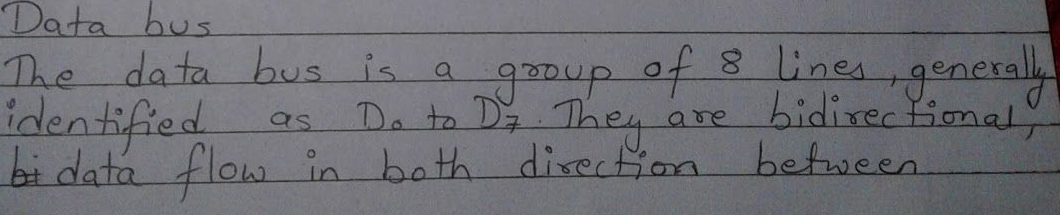 Data bus
The data bus is a group of 8 lines, generally
identified as D₀ to D₇. They are bidirectional,
data flow in both direction between